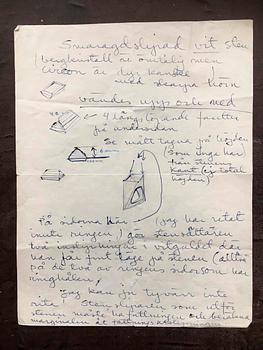 Smaragdslipad vit sten
(bergkristall är omöjlig men
circon är dyr kanske
med skarpa hörn
vändes upp och ned
4 långlöpande facetter
på undersidan
Se mått tagna på höjden
(som unga har)
från stenens
kant (ej total
höjden)
På sidorna här (jag har ritat
inuti ringen) gör stensättaren
två insvängningar i vitguldet där
man får fast tag på stenen (alltså
på de två av ringens sidor som har
ringhålen,
Jag kan ju tyvärr inte
rita. Stensliparen som utför
stenen måste ha fattningen och beräkna
marginalen åt